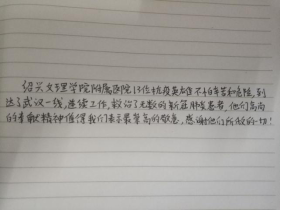 绍兴文理学院附属医院13位抗疫英雄不怕辛苦和危险,到
达了武汉一线,连续工作,救治了无数的新冠肺炎患者,他们高尚
的奉献精神值得我们表示最崇高的敬意,感谢他们所做的一切!